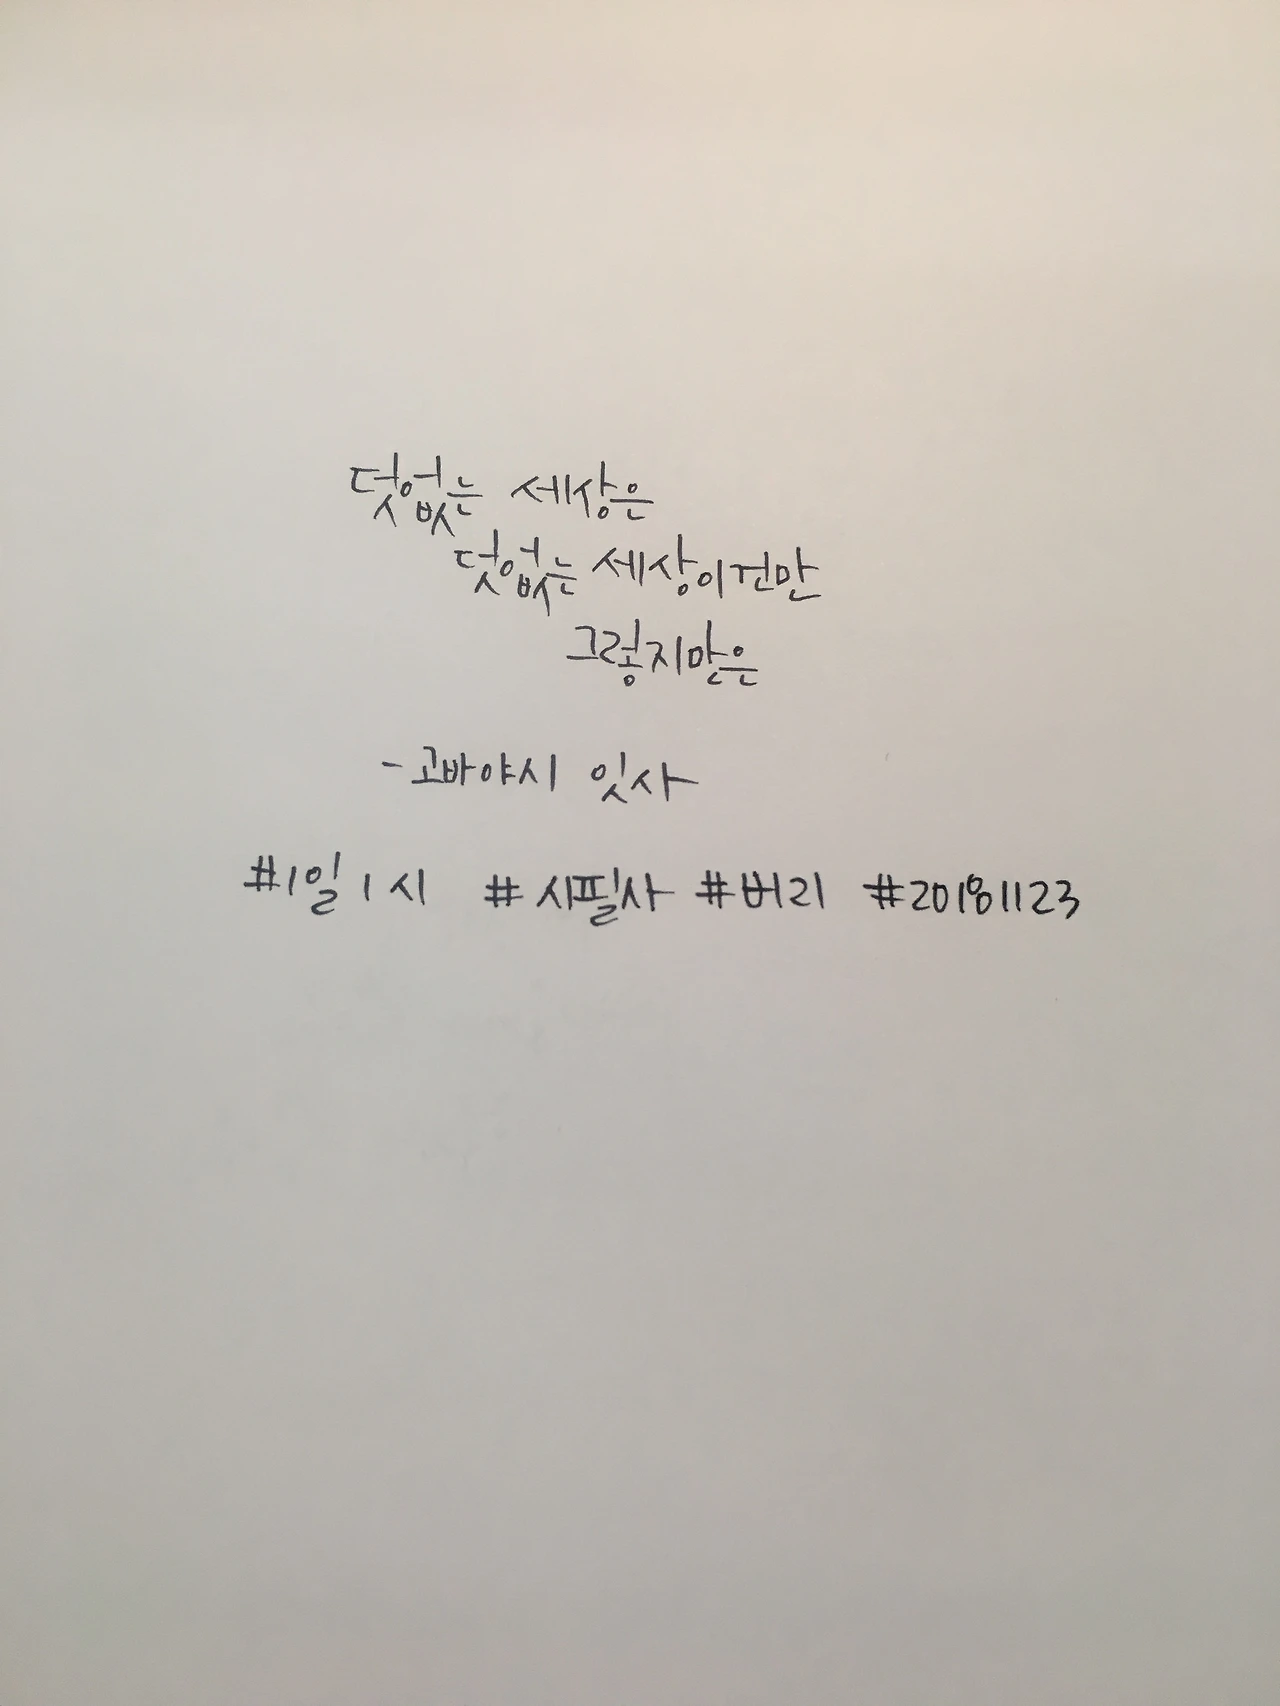 덧없는 세상은
덧없는 세상이건만
그렇지만은
- 고바야시 잇사
#1일 1시 #시필사 #버리 #20181123